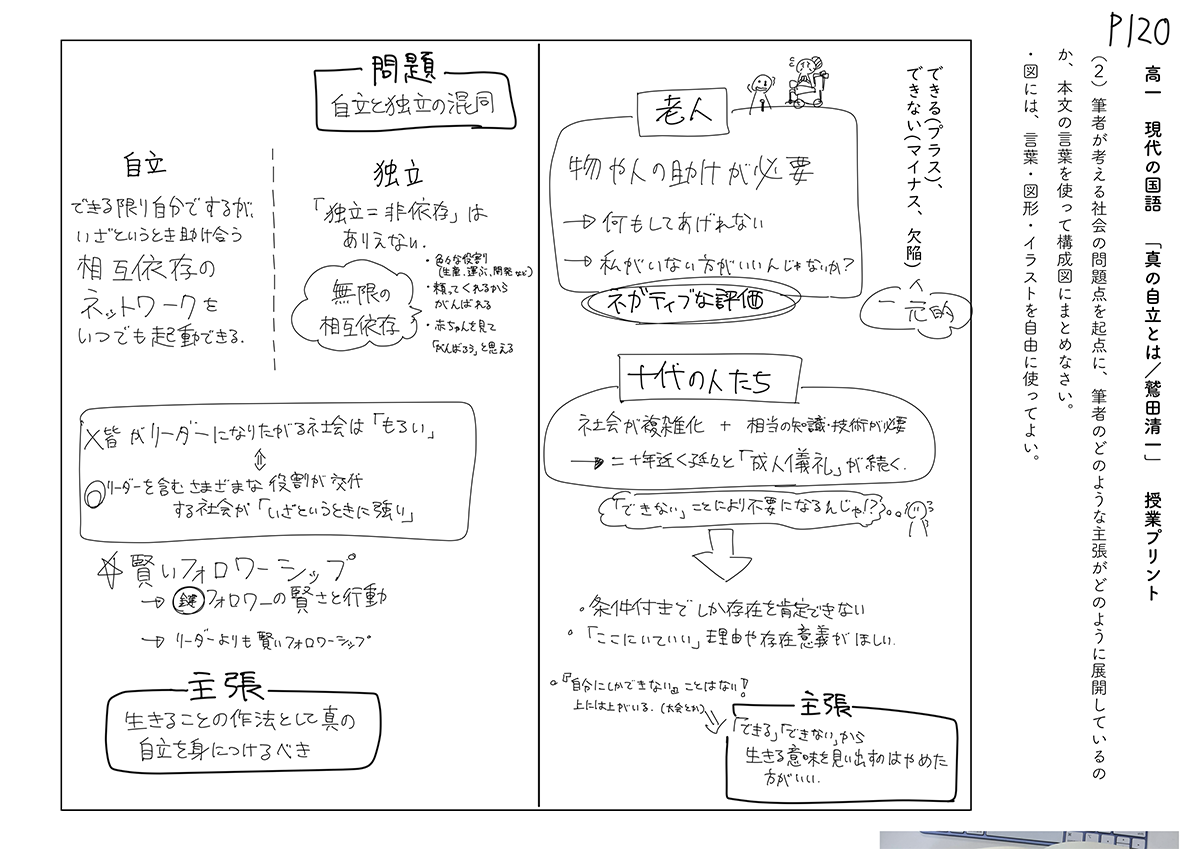 P120
高一　現代の国語　「真の自立とは／鷲田清一」　授業プリント
（２）筆者が考える社会の問題点を起点に、筆者のどのような主張がどのように展開しているの
か、本文の言葉を使って構成図にまとめなさい。
・図には、言葉・図形・イラストを自由に使ってよい。
できる(プラス)、
できない(マイナス、欠陥)
一元的
老人
物や人の助けが必要
→何もしてあげれない
→私がいない方がいいんじゃないか?
ネガティブな評価
十代の人たち
社会が複雑化 + 相当の知識・技術が必要
→二十年近く延々と「成人儀礼」が続く.
「できない」ことにより不要になるんじゃ!?
・条件付きでしか存在を肯定できない
・「ここにいていい」理由や存在意義がほしい.
・『自分にしかできない』ことはない!
上には上がいる. (大会とか)
主張
「できる」「できない」から
生きる意味を見い出すのはやめた
方がいい.
問題
自立と独立の混同
独立
「独立=非依存」は
ありえない.
無限の
相互依存
・色々な役割
(生産、運ぶ、開発など)
・頼ってくれるから
がんばれる
・赤ちゃんを見て
「がんばろう」と思える
自立
できる限り自分でするが、
いざというとき助け合う
相互依存の
ネットワークを
いつでも起動できる.
×皆がリーダーになりたがる社会は「もろい」
⇕
◎リーダーを含むさまざまな役割が交代
する社会が「いざというときに強い」
☆賢いフォロワーシップ
→鍵 フォロワーの賢さと行動
→リーダーよりも賢いフォロワーシップ
主張
生きることの作法として真の
自立を身につけるべき